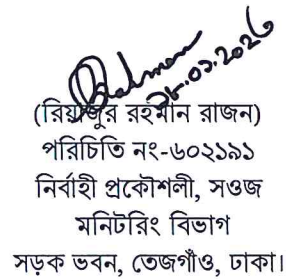 Rahman
২৮.০১.২০২৬
(রিয়াজুর রহমান রাজন)
পরিচিতি নং-৬০২১৯১
নির্বাহী প্রকৌশলী, সওজ
মনিটরিং বিভাগ
সড়ক ভবন, তেজগাঁও, ঢাকা।